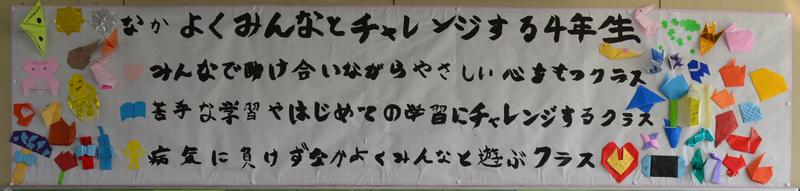 なかよくみんなとチャレンジする4年生
みんなで助け合いながらやさしい心をもつクラス
苦手な学習やはじめての学習にチャレンジするクラス
病気に負けずなかよくみんなと遊ぶクラス